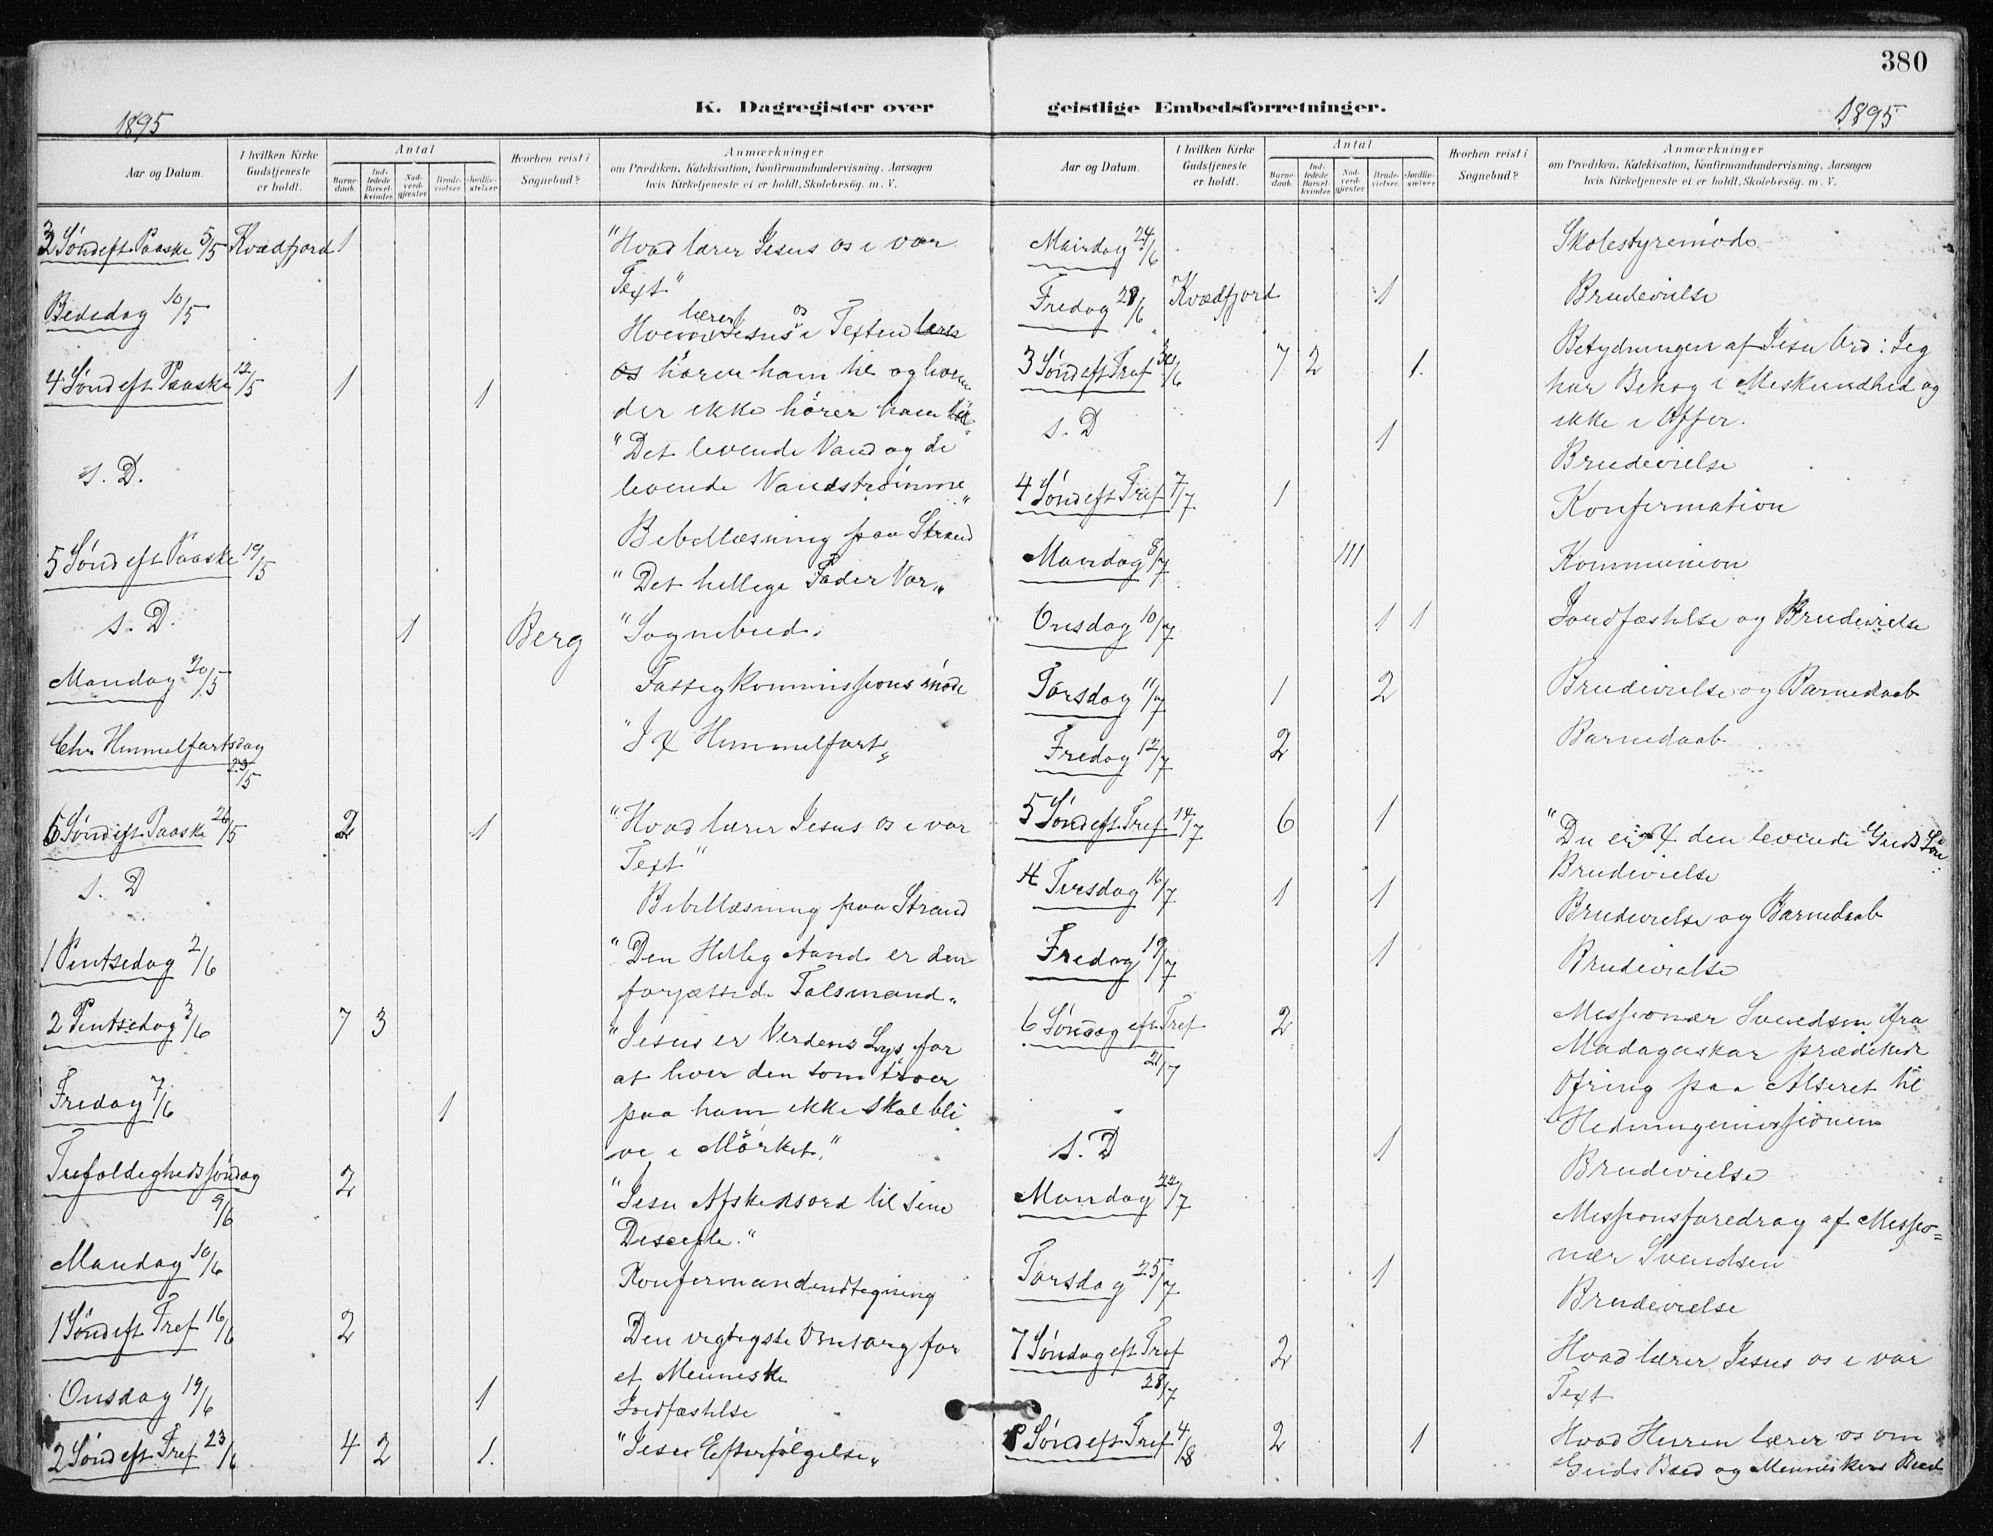 380
K. Dagregister over
geistlige Embedsforretninger.
1895
1895
Aar og Datum.
I hvilken Kirke Gudstjeneste er holdt.
Antal
Barnedaab.
Indledede Barselkvinder.
Nadverdgjæster.
Brudevielser.
Jordfæstelser.
Hvorhen reist i Sognebud?
Anmærkninger
om Prædiken, Katekisation, Konfirmandundervisning, Aarsagen
hvis Kirketjeneste ei er holdt, Skolebesøg. m. V.
3 Sønd eft Paaske 5/5 Kvædfjord 1 "Hvad lærer Jesus os i vor
Text"
Bededag 10/5
Hvem lærer Jesus os i Texten
at høren ham til og hvem
4 Sønd eft Paaske 12/5 1 1
der ikke hører ham til"
s. D. "Det levende Vand og de
levende Vandstrømme"
Bibellæsning paa Strand
5 Sønd eft Paaske 19/5 "Det hellige Fader Vor"
s. D. 1 Berg "Sognebud.
Mandag 20/5 Fattigkommissionsmøde
Chr Himmelfartsdag "J X Himmelfart"
23/5
6 Sønd eft Paaske 26/5 2 1 "Hvad lærer Jesus os i vor
Text"
s. D Bibellæsning paa Strand
1 Pintsedag 2/6 "Den Hellig Aand er den
forjættede Talsmand"
2 Pintsedag 3/6 7 3 "Jesus er Verdens Lys for
at hver den som troer
Freday 7/6 1 paa ham ikke skal bli
ve i Mørket"
Trefoldighedssøndag 2
9/6
"Jesu Afskedsord til sine
Disciple."
Mandag 10/6 Konfirmandudtegning
1 Sønd eft Tref 16/6 2 Den vigtigste Omsorg for
et Menneske
Onsdag 19/6 1 Jordfæstelse
2 Sønd eft Tref 23/6 4 2 1. "Jesu Efterfølgelse"
Aar og Datum.
I hvilken Kirke Gudstjeneste er holdt.
Antal
Barnedaab.
Indledede Barselkvinder.
Nadverdgjæster.
Brudevielser.
Jordfæstelser.
Hvorhen reist i Sognebud?
Anmærkninger
om Prædiken, Katekisation, Konfirmandundervisning, Aarsagen
hvis Kirketjeneste ei er holdt, Skolebesøg. m. V.
Mandag 24/6 Skolestyremøde
Fredag 28/6 Kvædfjord 1 Brudevielse
3 Sønd eft Tref 30/6 7 2 1. Betydningen af Jesu Ord: Jeg
har Behag i Miskundhed og
ikke i Offer.
s. D 1 Brudevielse
4 Sønd eft Tref 7/7 1 Konfirmation
Mandag 8/7 111 Kommunion
Onsdag 10/7 1 1 Jordfæstelse og Brudevielse
Torsdag 11/7 1 2 Brudevielse og Barnedaab
Fredag 12/7 2 Barnedaab
5 Sønd eft Tref 14/7 6 1 "Du er X den levende Guds Søn"
Brudevielse
Tirsdag 16/7 1 1 Brudevielse og Barnedaab
Fredag 19/7 1 Brudevielse
6 Søndag eft Tref 2 Missionær Svendsen fra
21/7 Madagaskar prædikede
Ofring paa Alteret til
Hedningemissionen
s. D 1 Brudevielse
Mandag 22/7 Missionsforedrag af Missio=
nær Svendsen
Torsdag 25/7 1 Brudevielse
7 Søndag eft Tref 2 Hvad lærer Jesus os i vor
28/7 Text
8 Sønd eft Tref 4/8 2 1 Hvad Herren lærer os om
Guds Bud og Menneskers Bud